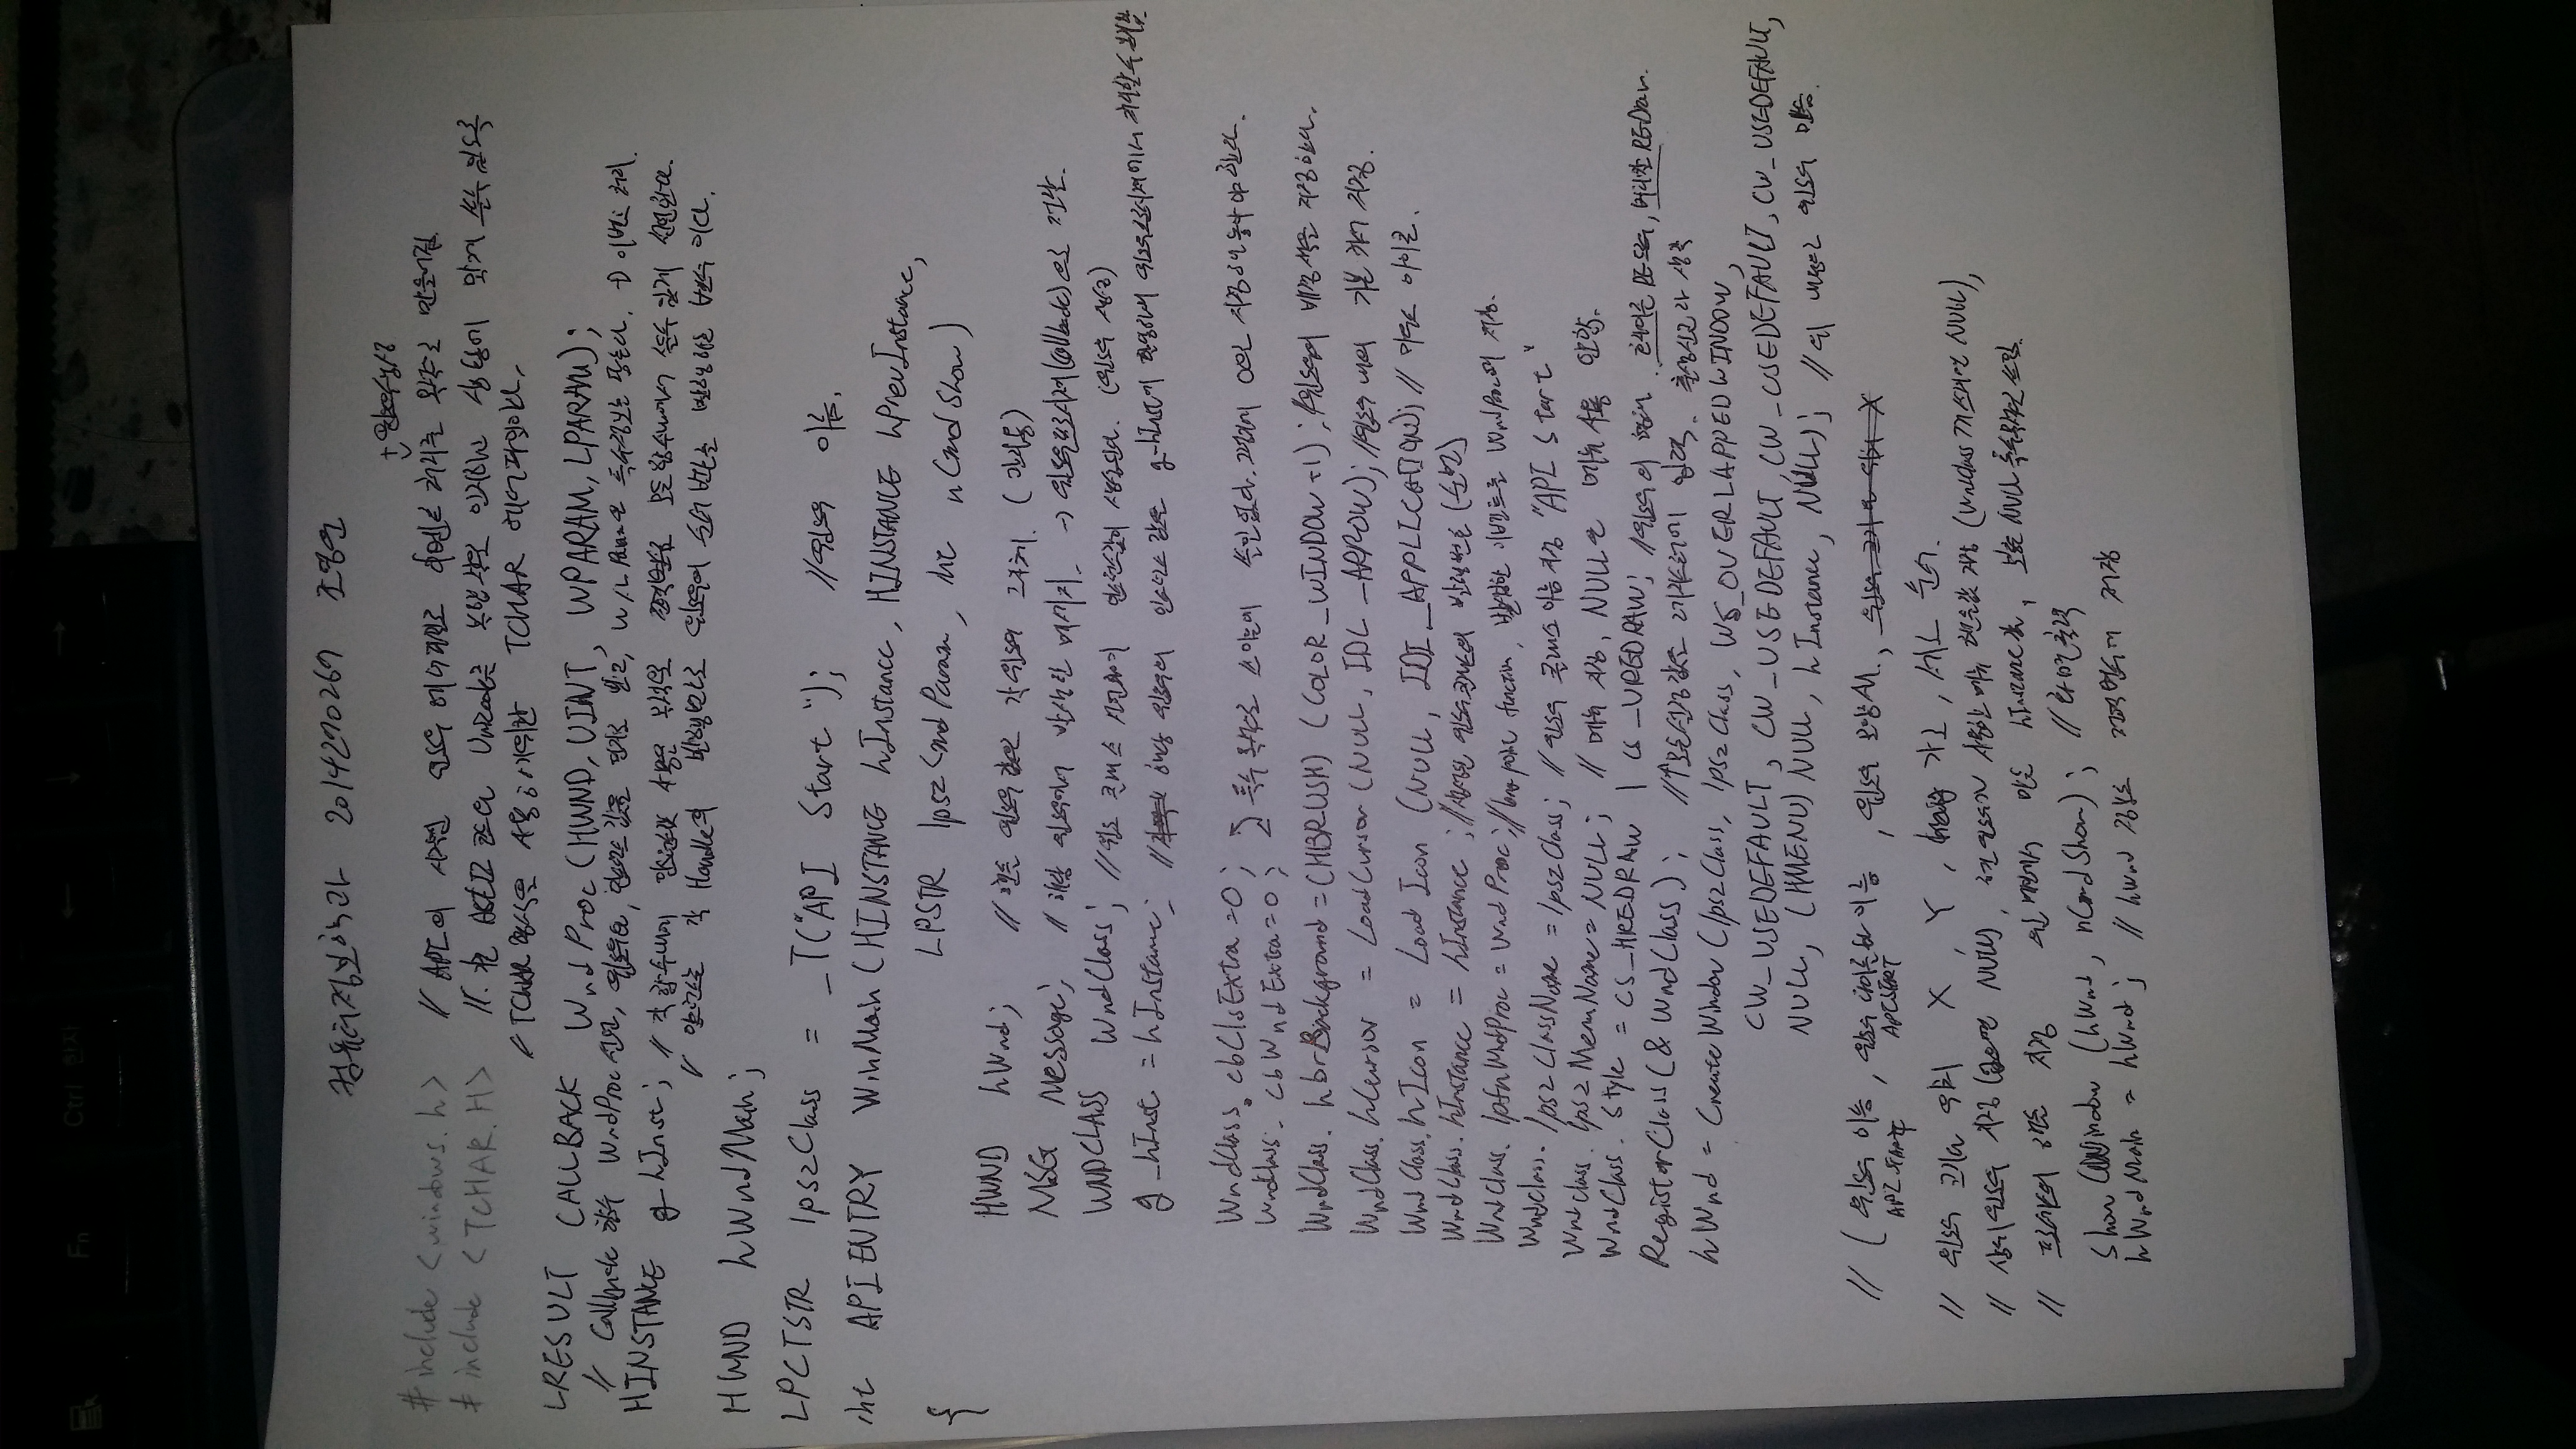 Fn
Ctrl 한자
← ↓ →
컴퓨터정보학과 2014270269 조영연
#include <windows.h> // API의 시작인 윈도우 헤더파일로 이벤트 처리를 목적으로 만들어짐.
#include <TCHAR.H> // ASCII 코드와 Unicode를 인지하고 상황에 맞게 쓸수 있도록
// TCHAR 형식을 사용하기위한 TCHAR 헤더파일이다.
LRESULT CALLBACK WndProc(HWND, UINT, WPARAM, LPARAM);
// Callback 함수 WndProc 선언, 윈도우와, 값을 받고, W/L Param은 특수정보를 담는다. → 이벤트 처리.
HINSTANCE g_hInst; // 각 함수내에 사용을 목적으로 전역변수로 모든함수내에서 쓸수 있게 선언한다.
// 각 Handle의 발행번호로 윈도우의 순서 번호를 발행하는 변수 이다.
HWND hWndMain;
LPCTSTR lpszClass = _T("API Start"); //윈도우 이름.
int APIENTRY WinMain(HINSTANCE hInstance, HINSTANCE hPrevInstance,
LPSTR lpszCmdParam, int nCmdShow)
{
HWND hWnd; // 핸들 윈도우 값은 각 윈도우 그자체. (관리용)
MSG Message; // 해당 윈도우에서 발생한 메세지. → 윈도우프로시저(callback)으로 전달.
WNDCLASS WndClass; // 윈도우 클래스 생성된다. (윈도우 생성)
g_hInst = hInstance; // 해당 윈도우의 인스턴스 값을 g_hInst에 윈도우프로시저에서
WndClass.cbClsExtra=0;
WndClass.cbWndExtra=0; 특수 목적으로 쓰이는데 쓸일 없다. 그렇기에 0으로 지정해 놓아야 한다.
WndClass.hbrBackground=(HBRUSH)(COLOR_WINDOW+1); //윈도우의 배경색을 지정한다.
WndClass.hCursor = LoadCursor(NULL, IDC_ARROW); //윈도우 내의 기본 커서 지정.
WndClass.hIcon = LoadIcon(NULL, IDI_APPLICATION); // 아이콘.
WndClass.hInstance = hInstance; //생성된 윈도우클래스의 발행번호 (순번)
WndClass.lpfnWndProc = WndProc; //long point function, 발생한 이벤트를 WndProc에 저장.
WndClass.lpszClassName = lpszClass; // 윈도우 클래스 이름 지정 "API Start"
WndClass.lpszMenuName = NULL; // 메뉴 지정, NULL은 메뉴 사용 안함.
WndClass.style = CS_HREDRAW | CS_VREDRAW; //윈도우의 형태
RegisterClass(&WndClass); //↑모든설정값을 레지스터에 입력. 출생신고라 생각
hWnd = CreateWindow(lpszClass, lpszClass, WS_OVERLAPPEDWINDOW,
CW_USEDEFAULT, CW_USEDEFAULT, CW_USEDEFAULT, CW_USEDEFAULT,
NULL, (HMENU)NULL, hInstance, NULL); //위 내용으로 윈도우 만듬.
// (윈도우 이름, 윈도우 타이틀바 이름, 윈도우 모양새.,
API START API START
// 윈도우 크기와 위치 X, Y, 가로, 세로 순서.
// 상위윈도우 지정(없으면 NULL), 현 윈도우가 사용할 메뉴 핸들값 지정 (WndClass NULL),
// 프로그램의 핸들 지정 윈메인에서 만든 hInstance값, 보통 NULL 특수목적으로 쓰임.
ShowWindow(hWnd, nCmdShow); //화면출력
hWndMain = hWnd; // hWnd 정보를 전역변수에 저장